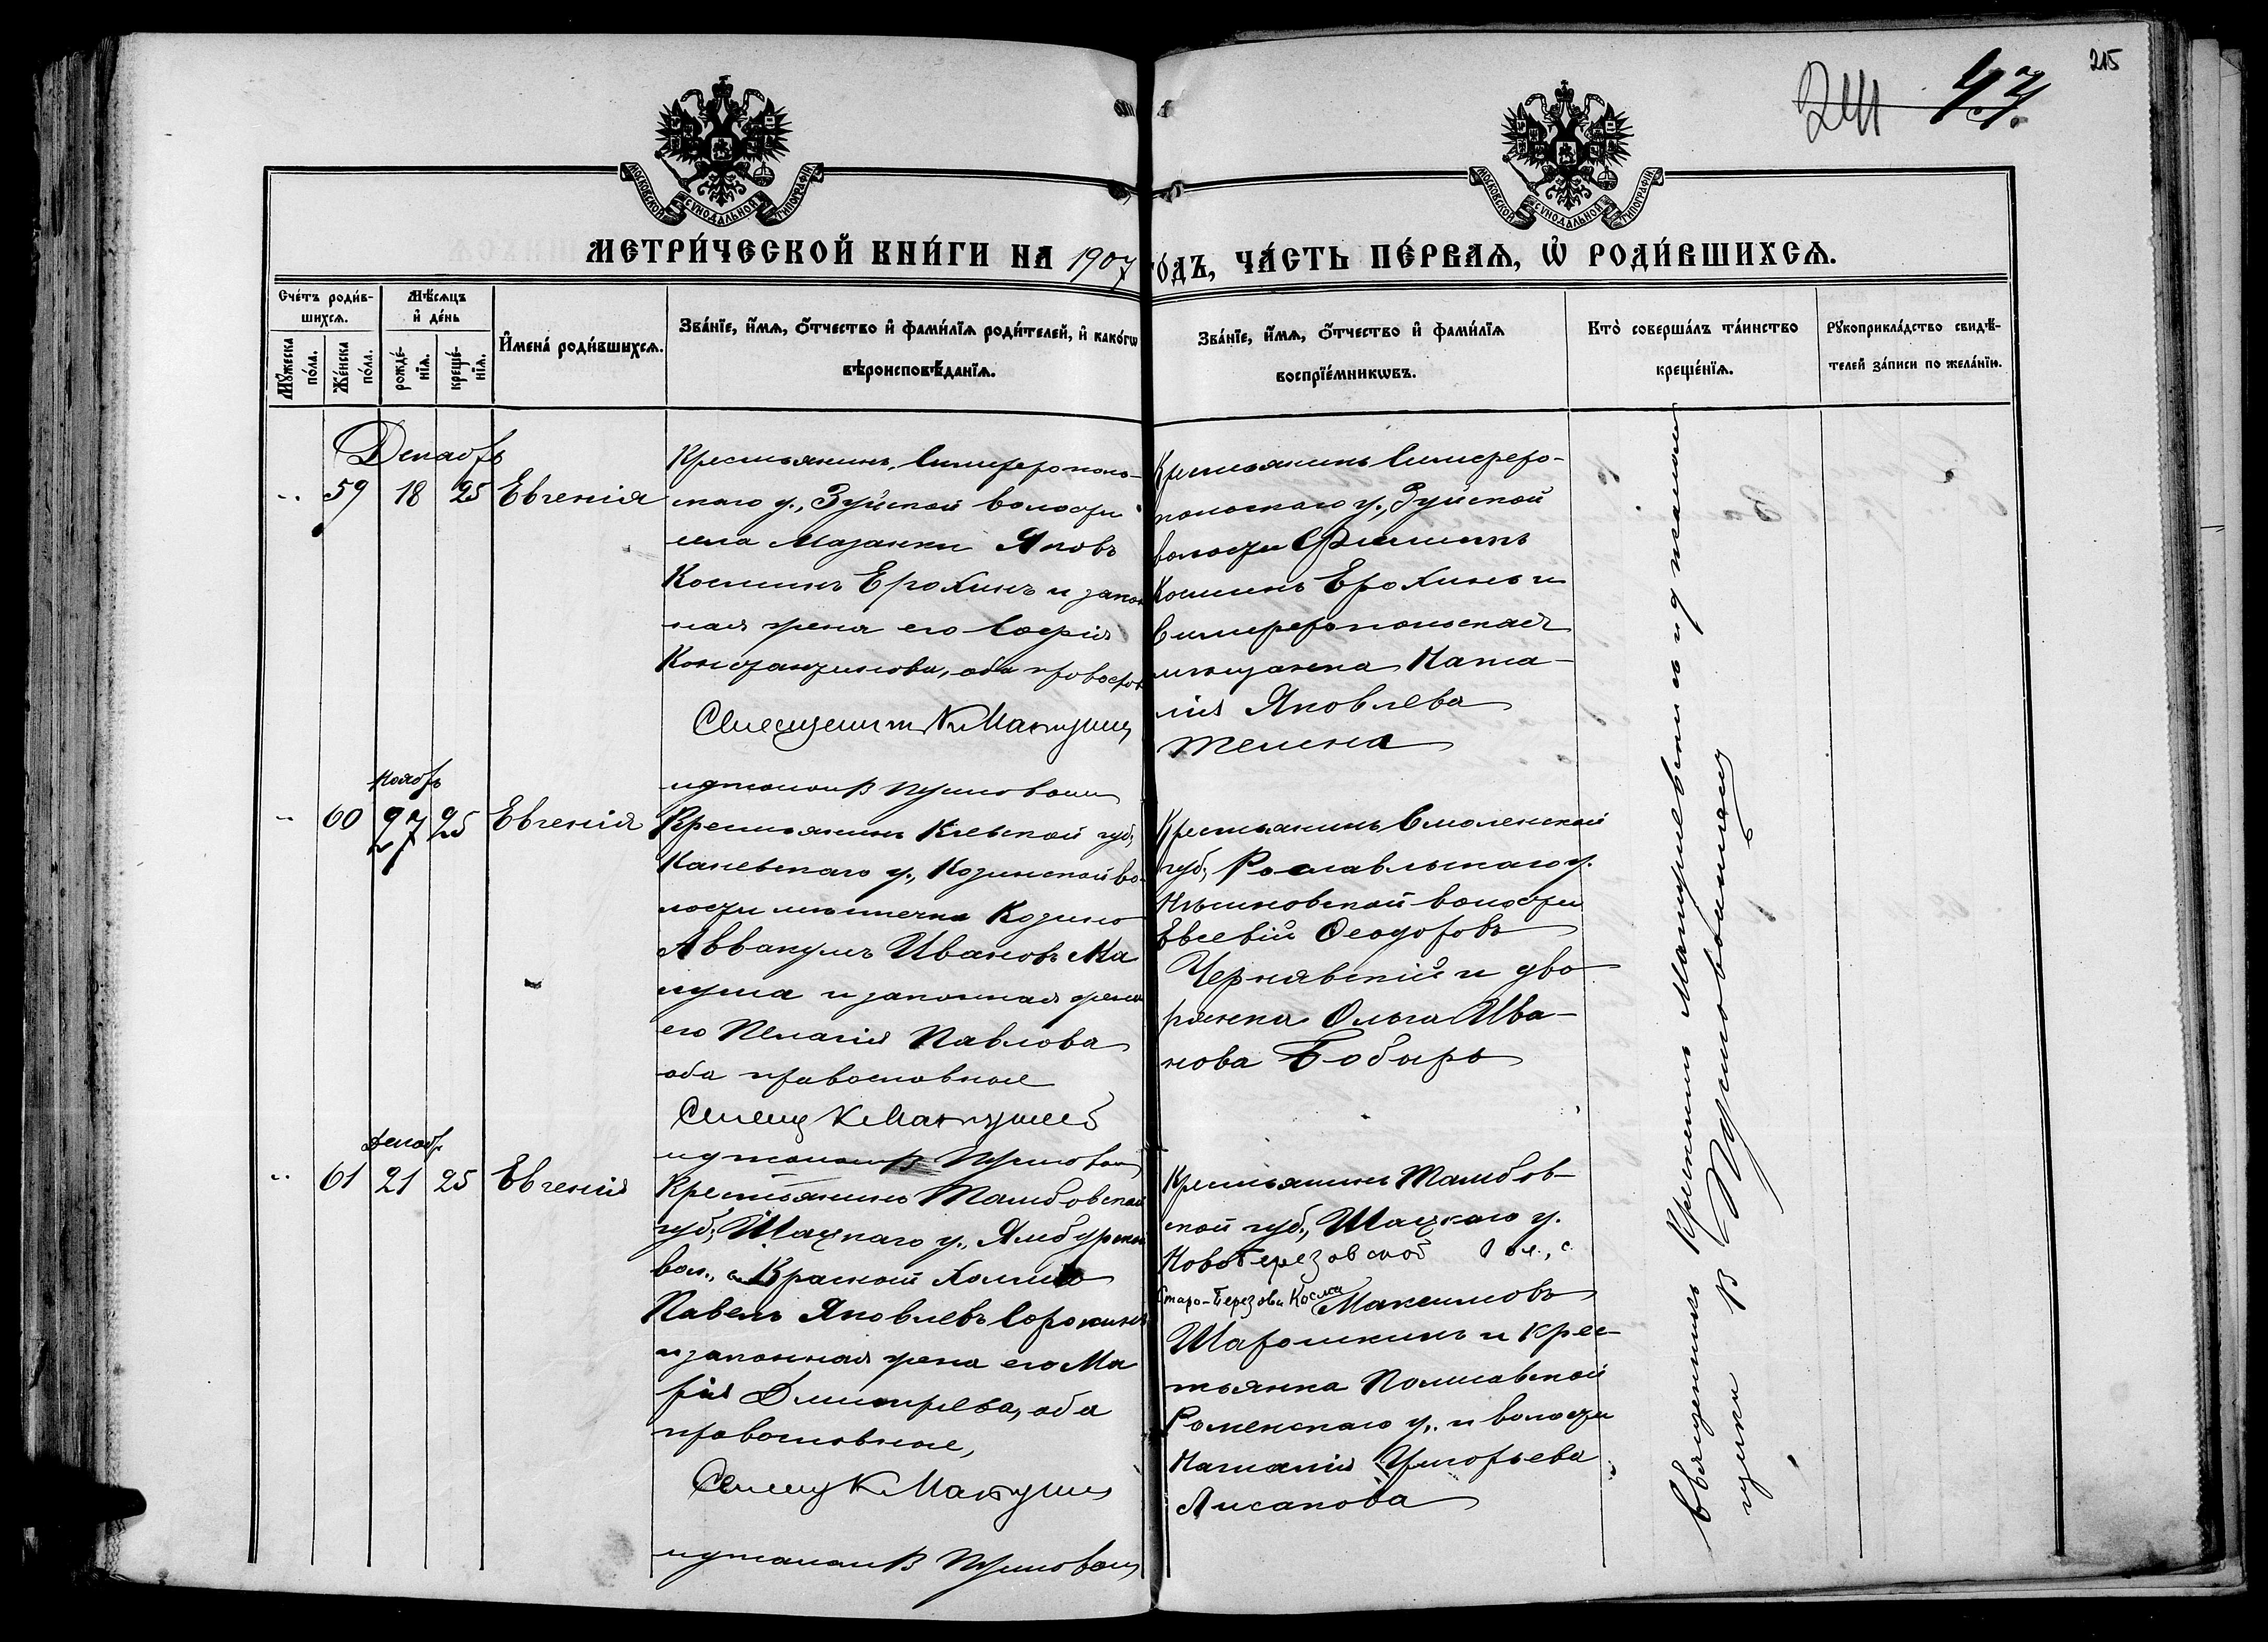 215
241 47.
МОСКОВСКОЙ СѴНОДАЛЬНОЙ ТИПОГРАФІИ
МОСКОВСКОЙ СѴНОДАЛЬНОЙ ТИПОГРАФІИ
МЕТРИ́ЧЕСКОЙ КНИ́ГИ НА 1907 ГО́ДЪ, ЧА́СТЬ ПЕ́РВАѦ, Ѡ РОДИ́ВШИХСѦ.
Сче́тъ роди́в-
шихсѧ.
Мꙋ́жеска по́ла.
Же́нска по́ла.
Мѣ́сѧцъ
и҆ де́нь
рожде́-
нїѧ.
креще́-
нїѧ.
И҆мена̀ роди́вшихсѧ.
Зва́нїе, и҆́мѧ, ѻ҆́тчество и҆ фами́лїѧ роди́телей, и҆ како́гѡ
вѣроисповѣ́данїѧ.
Зва́нїе, и҆́мѧ, ѻ҆́тчество и҆ фами́лїѧ
воспрїе́мникѡвъ.
Кто̀ соверша́лъ та́инство
креще́нїѧ.
Рꙋкоприкла́дство свидѣ́-
телей за́писи по жела́нїю.
Декабрь
59 18 25 Евгенія
Крестьянинъ Симферополь-
скаго у., Зуйской волости
села Мазанки Яковъ
Косминъ Ерохинъ и закон
ная жена его Софія
Константинова, оба правослов
Крестьянинъ Симферо-
польскаго у., Зуйской
волости Филиппъ
Косминъ Ерохинъ и
Симферопольская
мѣщанка Ната-
лія Яковлева
Ноябрь
60 27 25 Евгенія
Крестьянинъ Кіевской губ.,
Каневскаго у., Козинской во-
лости мѣстечка Козино
Аввакумъ Ивановъ Ма
и законная жена
его Пелагія Павлова
оба православные
Крестьянинъ Смоленской
губ., Рославльскаго у.
волости
Евсевій Ѳеодоровъ
Чернявскій и дво-
рянка Ольга Ива-
нова Бобырь
Декабрь
61 21 25 Евгенія
Крестьянинъ Тамбовской
губ., Шацкаго у., Ямбурской
вол., с. Красной Холмъ
Павелъ Яковлевъ Сорокинъ
и законная жена его Ма
рія Димитріева, оба
православные,
Крестьянинъ Тамбов-
ской губ., Шацкаго у.
Новоберезовской вол., с.
Старо-Березова Косма Максимовъ
и крес-
тьянка Полтавской
Роменскаго у., и волости
Наталія Григорьева
Лисакова
Священникъ